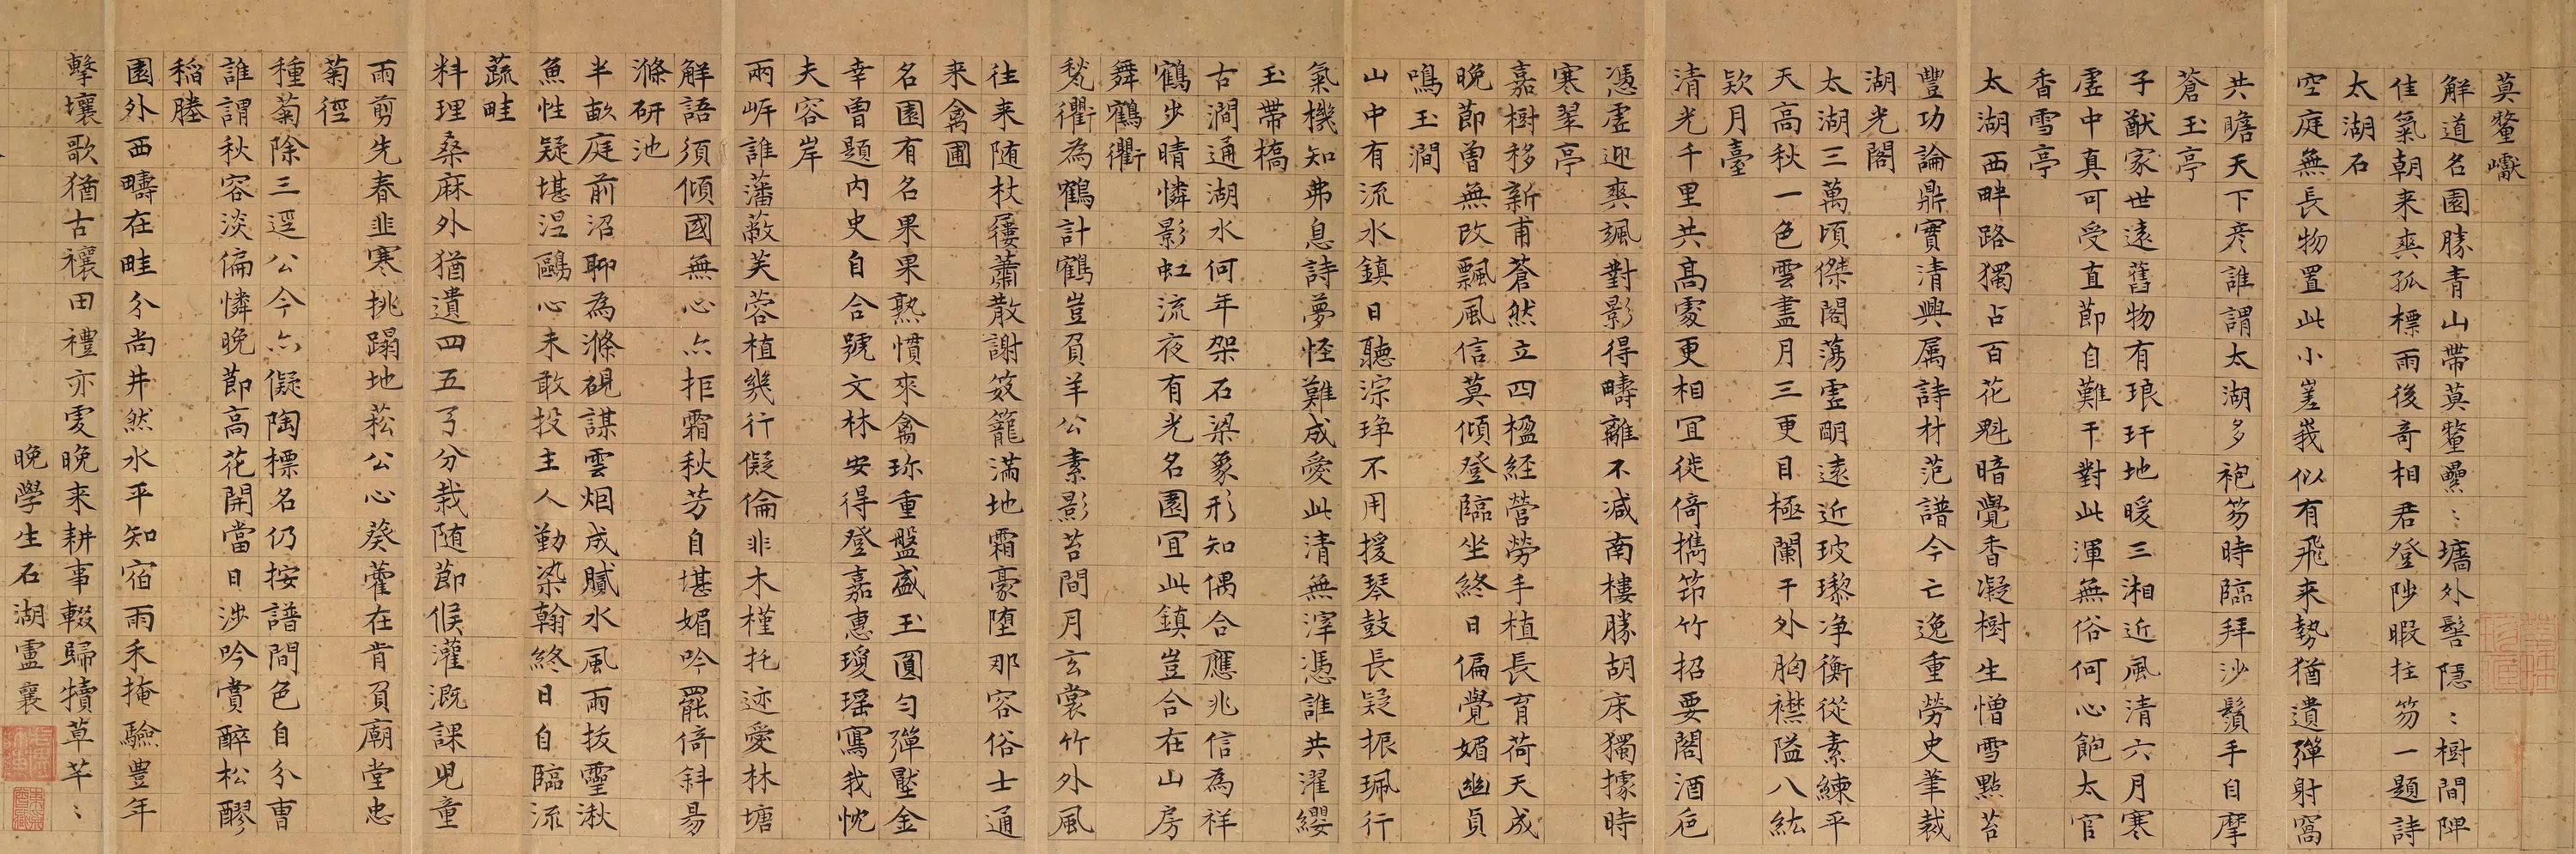 莫螯巘
解道名園勝青山帶莫螯纍〻墻外髻隱〻樹間陴
佳氣朝来爽孤標雨後奇相君登陟暇拄笏一題詩
太湖石
空庭無長物置此小嵳峩似有飛来勢猶遺彈射窩
共瞻天下彦誰謂太湖多袍笏時臨拜沙鬚手自摩
蒼玉亭
子猷家世遠舊物有琅玕地暖三湘近風清六月寒
虛中真可受直節自難干對此渾無俗何心飽太官
香雪亭
太湖西畔路獨占百花魁暗覺香凝樹生憎雪點苔
豐功論鼎實清興属詩材范譜今亡逸重勞史筆裁
湖光閣
太湖三萬頃傑閣蕩虛明遠近玻瓈净衡從素練平
天高秋一色雲盡月三更目極闌干外胸襟隘八紘
欵月臺
清光千里共高處更相宜徙倚擕筇竹招要閣酒卮
憑虛迎爽颯對影得疇離不減南樓勝胡床獨據時
寒翠亭
嘉樹移新甫蒼然立四楹経營勞手植長育荷天成
晚節曽無改飄風信莫傾登臨坐終日偏覺媚幽貞
鳴玉澗
山中有流水鎮日聽淙琤不用援琴鼓長疑振珮行
氣機知弗息詩夢怪難成愛此清無滓憑誰共濯纓
玉帶橋
古澗通湖水何年架石梁象形知偶合應兆信為祥
鶴步晴憐影虹流夜有光名園宜此鎮豈合在山房
舞鶴衢
甃衢為鶴計鶴豈負羊公素影苔間月玄裳竹外風
往来随杖屨蕭散謝笯籠滿地霜毫堕那容俗士通
来禽圃
名園有名果果熟慣來禽珎重盤盛玉圓勻彈壓金
幸曽題内史自合號文林安得登嘉惠瓊瑶寫我忱
夫容岸
兩岍誰藩蔽芙蓉植幾行儗倫非木槿托迹愛林塘
解語須傾國無心亦拒霜秋芳自堪媚吟罷倚斜昜
滌研池
半畝庭前沼聊為滌硯謀雲烟成膩水風雨拔靈湫
魚性疑堪涅鷗心未敢投主人勤染翰終日自臨流
蔬畦
料理桑麻外猶遺四五弓分栽随節候灌溉課児童
雨剪先春韭寒挑蹋地菘公心葵藿在肯負廟堂忠
菊徑
種菊除三逕公今亦儗陶標名仍按譜間色自分曹
誰謂秋容淡偏憐晚節高花開當日涉吟賞醉松醪
稲塍
園外西疇在畦分尚井然水平知宿雨禾掩驗豊年
擊壤歌猶古禳田禮亦䖍晚来耕事輟歸犢草芊〻
晚學生石湖盧襄